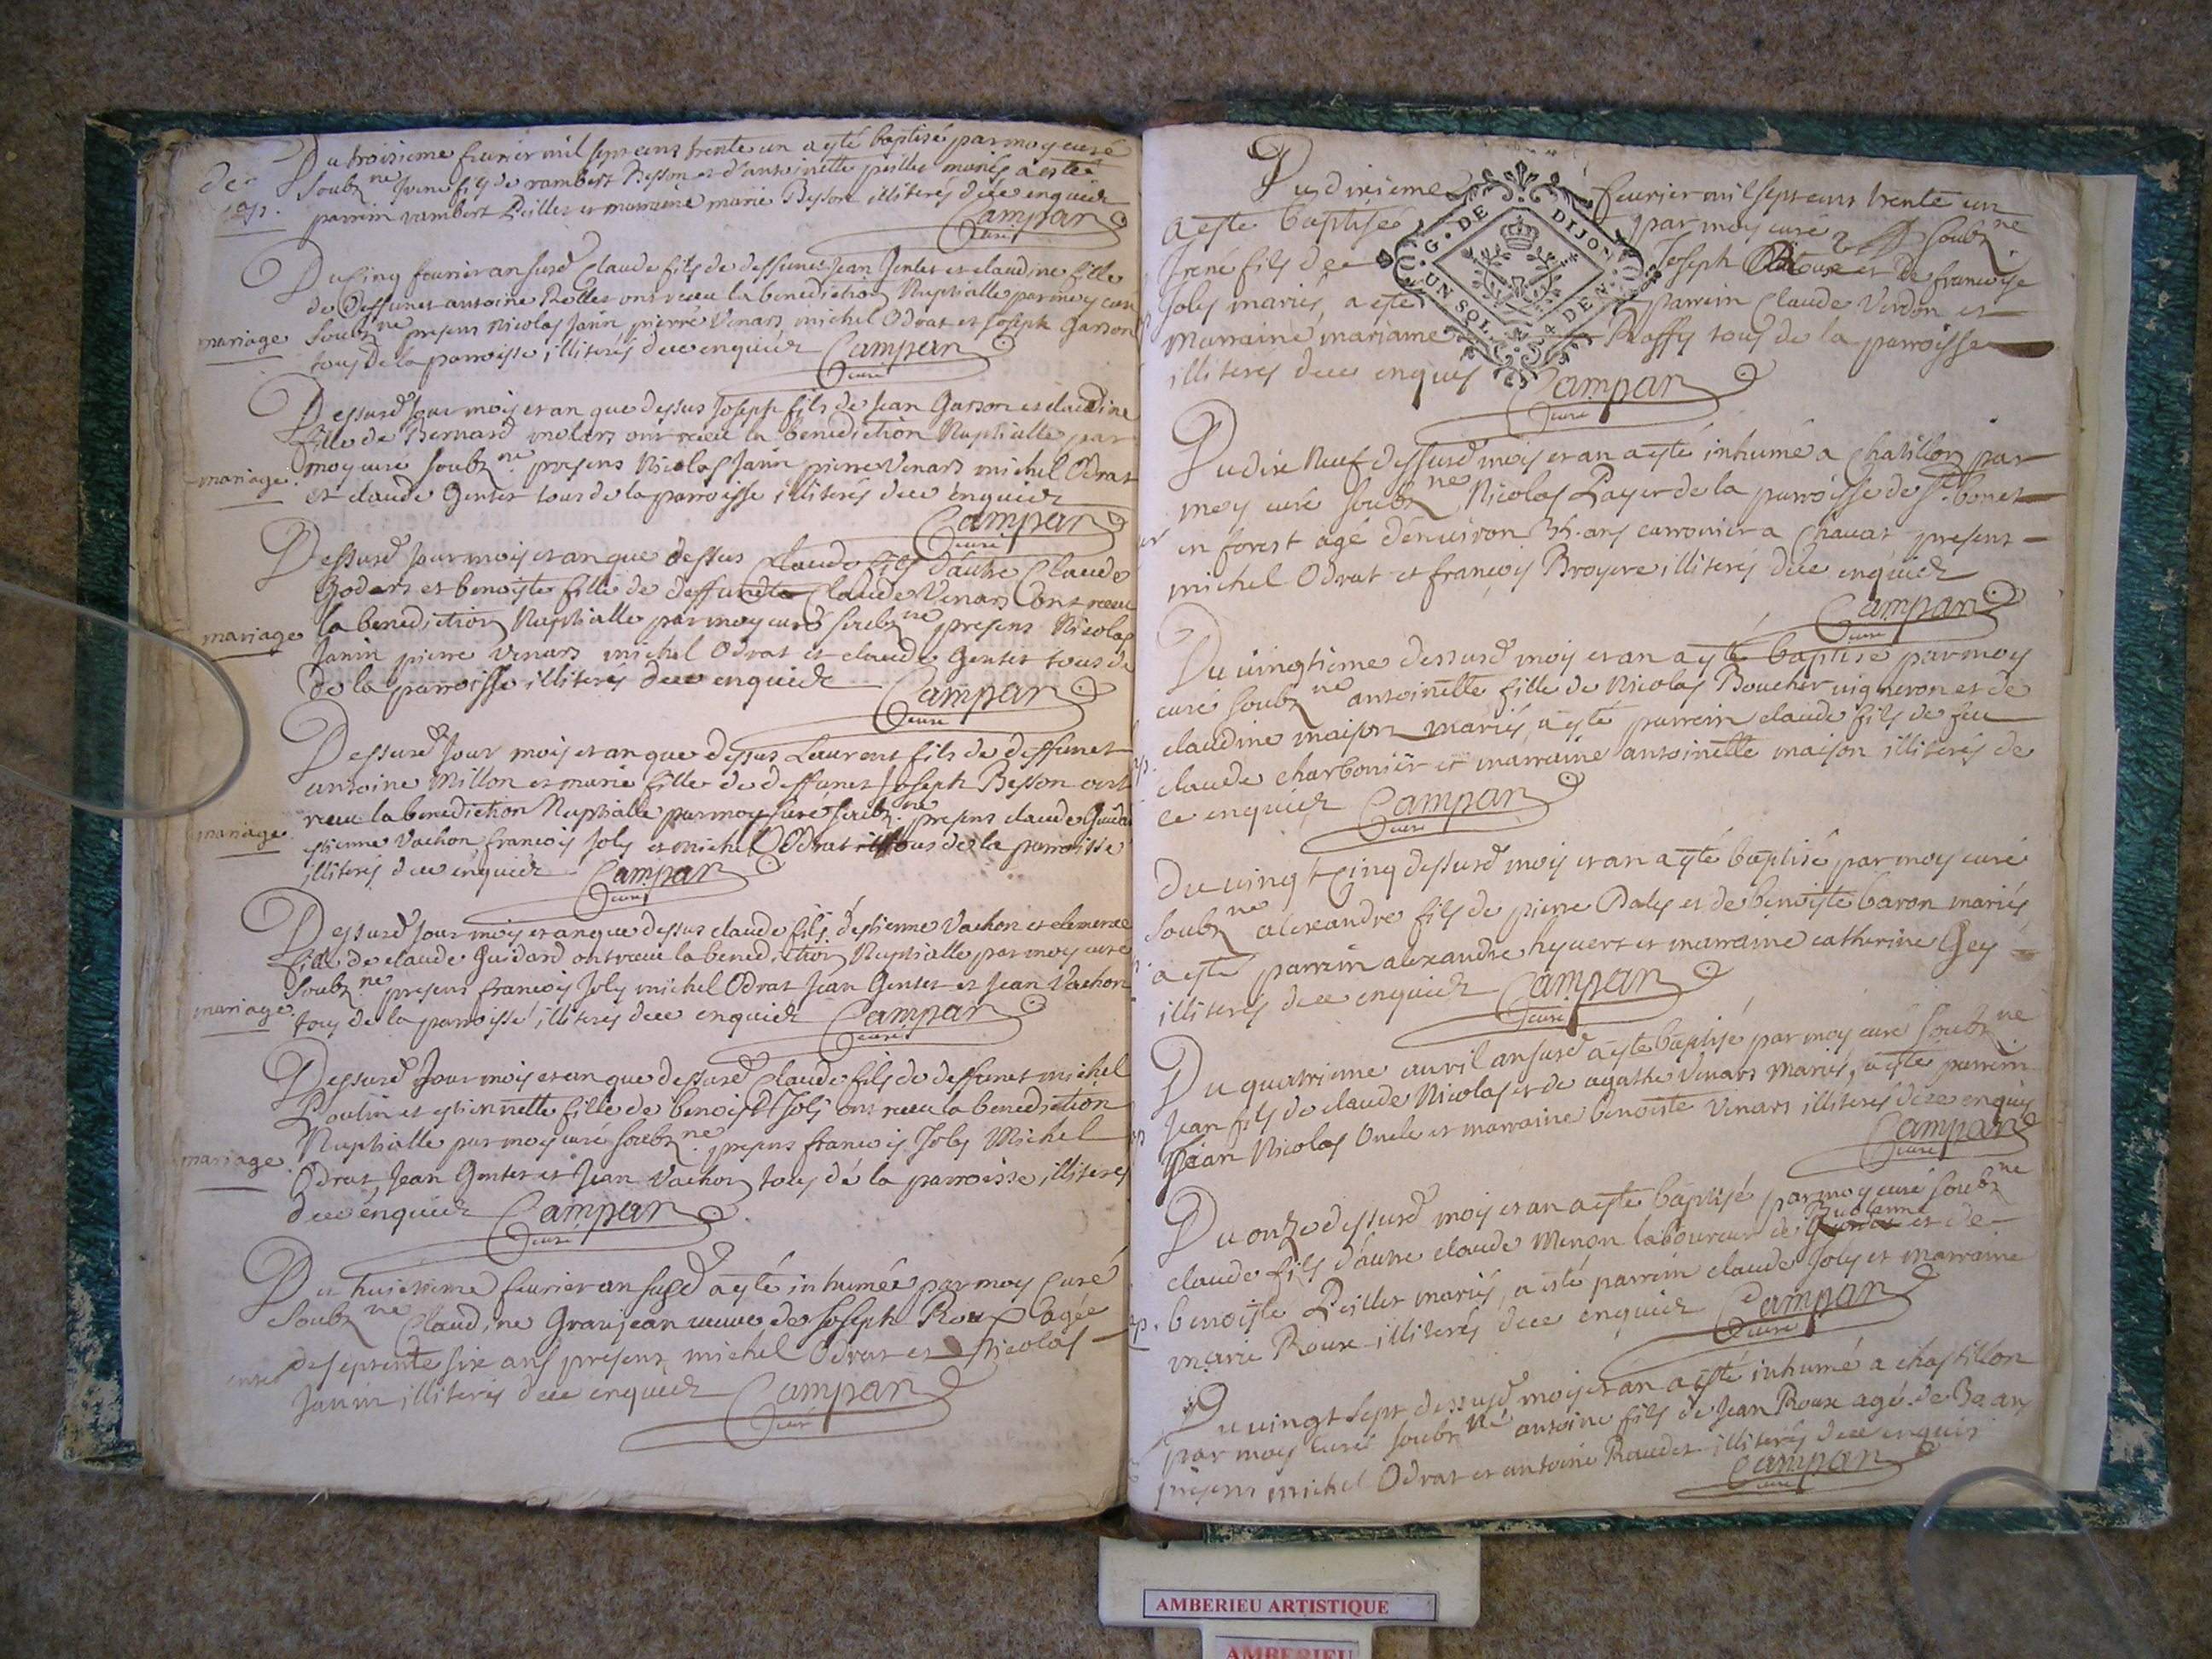 Du troisieme feurier mil sept cens trente un a esté baptisé par moy curé
soubz.ne Irene fils de rambert Besson et d'antoinette peillet mariés a esté
parrein rambert Peillet et marraine marie Besson illiterés de ce enquier
Campan
curé
Du cinq feurier an susd claude fils de deffunct Jean Gentet et claudine fille
de deffunct antoine Rollet ont receu la benediction Nuptialle par moy curé
mariage soubz.ne presens Nicolas Janin pierre Venars michel Odrat et Joseph Garson
tous de la parroisse illiterés de ce enquier Campan
curé
Dessusd Jour mois et an que dessus Joseph fils de Jean Garson et claudine
fille de Bernard molars ont receu la benediction Nuptialle par
mariage moy curé soubz.ne presens Nicolas Janin pierre Venars michel Odrat
et claude Gentet tous de la parroisse illiterés de ce enquier
Campan
curé
Dessusd Jour mois et an que dessus claude fils d'autre Claude
Godars et benoiste fille de deffunct claude Venars ont receu
mariage la benediction Nuptialle par moy curé soubz.ne presens Nicolas
Janin pierre Venars michel Odrat et claude Gentet tous de
de la parroisse illiterés de ce enquier Campan
curé
Dessusd Jour mois et an que dessus Laurent fils de deffunct
antoine Millon et marie fille de deffunct Joseph Besson ont
mariage receu la benediction Nuptialle par moy curé soubz.ne presens claude
estienne Vachon francois Joly et michel Odrat tous de la parroisse
illiterés de ce enquier Campan
curé
Dessusd Jour mois et an que dessus claude fils d'estienne Vachon et clemence
fille de claude Guidard ont receu la benediction Nuptialle par moy curé
mariage soubz.ne presens francois Joly michel Odrat Jean Gentet et Jean Vachon
tous de la parroisse illiterés de ce enquier Campan
curé
Dessusd Jour mois et an que dessusd claude fils de deffunct michel
Poulin et estiennette fille de benoist Joly ont receu la benediction
mariage Nuptialle par moy curé soubz.ne presens francois Joly Michel
Odrat, Jean Gentet et Jean Vachon tous de la parroisse illiterés
de ce enquier Campan
curé
Du huictieme feurier an susd a esté inhumée par moy curé
soubz.ne Claudine Granjean veuve de Joseph Roux agée
de septente six ans presens michel Odrat et Nicolas
Janin illiterés de ce enquier Campan
curé
Du dixieme feurier mil sept cens trente un
a esté baptisé par moy curé soubz.ne
Irené fils de Joseph et de francoise
Joly mariés, a esté parrein Claude Verdon et
marraine mariaine Raffy tous de la parroisse
illiterés de ce enquis Campan
curé
G. DE DIJON
UN SOL 4 DEN
Du dix Neuf dessusd mois et an a esté inhumé a Chatillon par
moy curé soubz.ne Nicolas Payer de la parroisse de St. bonet
en forest agé d'environ 35. ans carronier a Chavat presens
michel Odrat et francois Broyere illiterés de ce enquier
Campan
curé
Du vingtieme dessusd mois et an a esté baptisé par moy
curé soubz.ne antoinette fille de Nicolas Boucher vigneron et de
claudine maison mariés, a esté parrein claude fils de feu
claude charbonier et marraine antoinette maison illiterés de
ce enquier Campan
curé
Du vingt cinq dessusd mois et an a esté baptisé par moy curé
soubz.ne alexandre fils de pierre Daly et de benoiste baron mariés
a esté parrein alexandre hyvert et marraine catherine Gey
illiterés de ce enquier Campan
curé
Du quatrieme avril an susd a esté baptisé par moy curé soubz.ne
Jean fils de claude Nicolas et de agathe Venars mariés, a esté parrein
Jean Nicolas Oncle et marraine benoiste Venars illiterés de ce enquis
Campan
curé
Du onze dessusd mois et an a esté baptisé par moy curé soubz.ne
claude fils d'autre claude Menon laboureur de et de
benoiste Peillet mariés, a esté parrein claude Joly et marraine
marie Roux illiterés de ce enquier Campan
curé
Du vingt sept dessusd mois et an a esté inhumé a chastillon
par moy curé soubz.ne antoine fils de Jean Roux agé de ans
presens michel Odrat et antoine Raudet illiterés de ce enquis
Campan
curé
AMBERIEU ARTISTIQUE
AMBERIEU